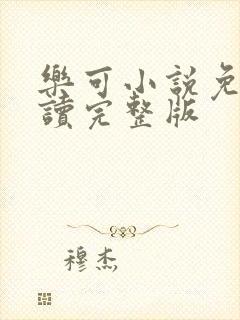 樂可小說免
讀完整版
穆杰